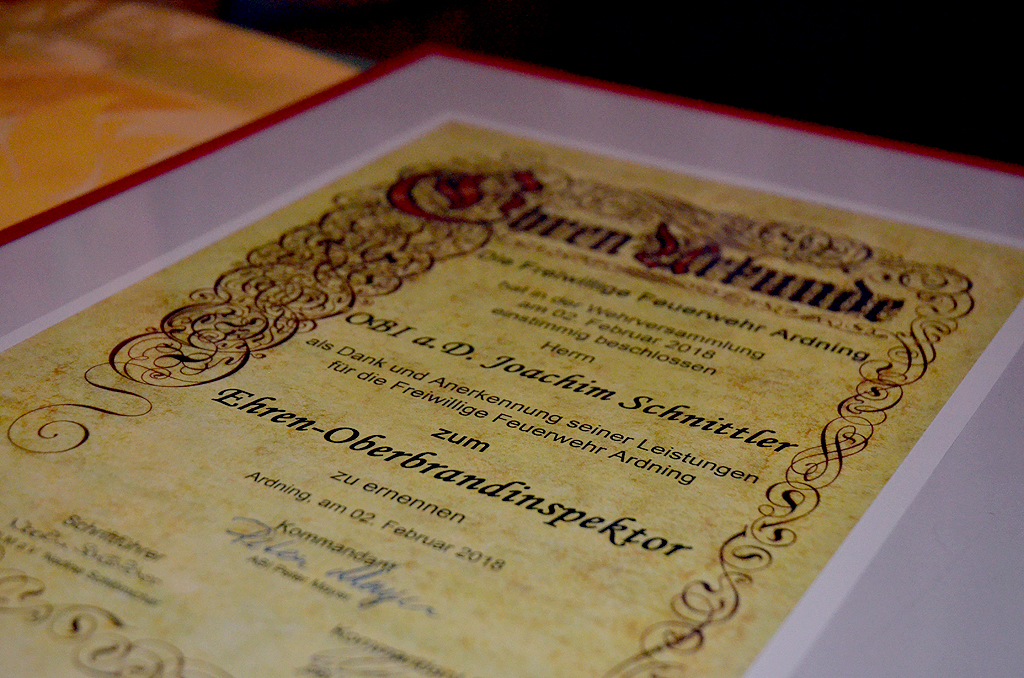 Ehren Urkunde
Die Freiwillige Feuerwehr Ardning
hat in der Wehrversammlung
am 02. Februar 2018
einstimmig beschlossen
Herrn
OBI a.D. Joachim Schnittler
als Dank und Anerkennung seiner Leistungen
für die Freiwillige Feuerwehr Ardning
zum
Ehren-Oberbrandinspektor
zu ernennen
Ardning, am 02. Februar 2018
Schriftführer
Kommandant
ABI Peter Mayer